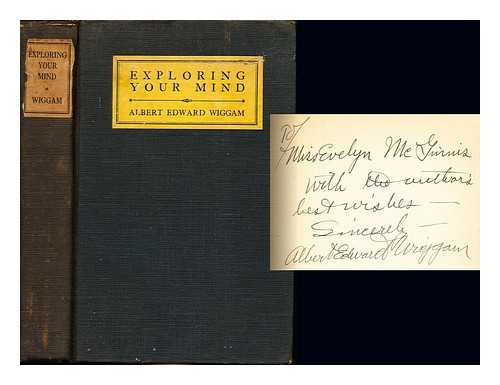 EXPLORING
YOUR
MIND
WIGGAM
EXPLORING
YOUR MIND
ALBERT EDWARD WIGGAM
To
Miss Evelyn McGinnis
with the author's
best wishes —
Sincerely —
Albert Edward Wiggam